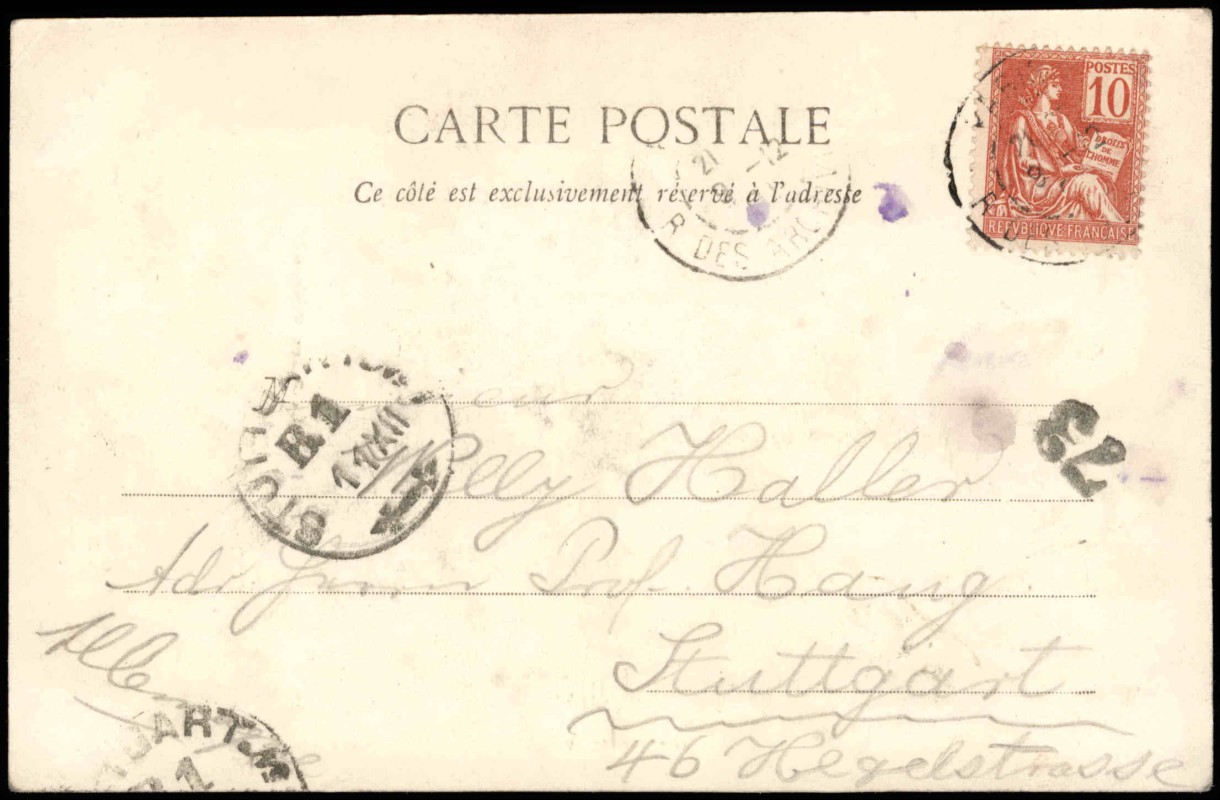 CARTE POSTALE
Ce côté est exclusivement réservé à l'adresse
POSTES
10
DROITS DE L'HOMME
REPVBLIQVE FRANÇAISE
21
R DES
B1
11XII
73
Monsieur
Willy Haller
Adr. Herrn Prof. Haug
Stuttgart
46 Hegelstrasse